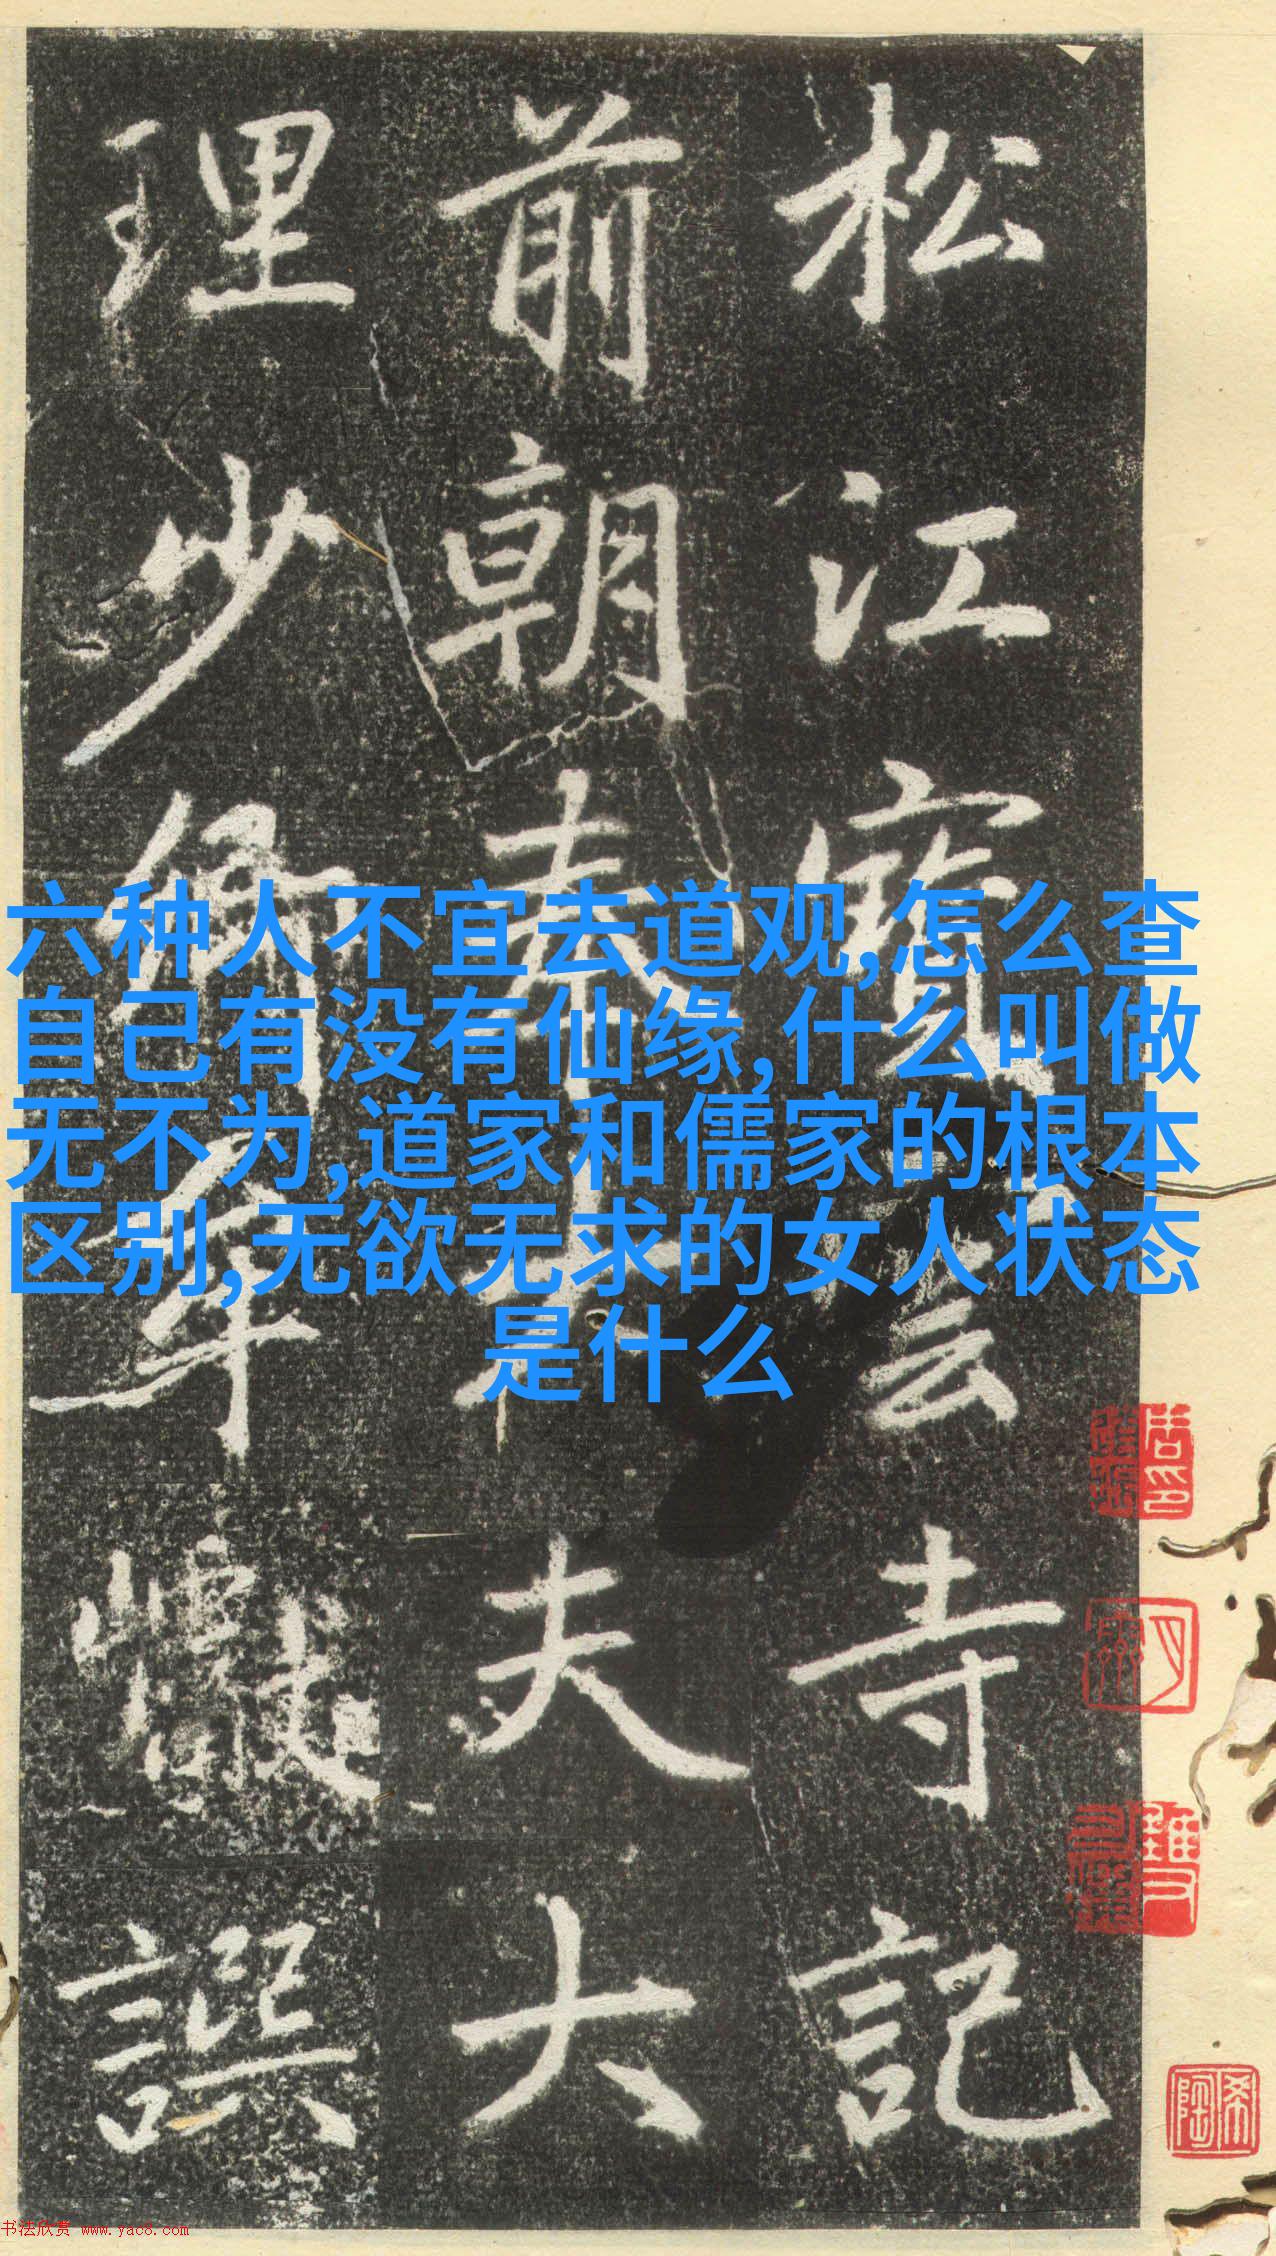 松江寳雲寺記
前朝奉大夫大
理少卿牟巘譔
六种人不宜去道观,怎么查
自己有没有仙缘,什么叫做
无不为,道家和儒家的根本
区别,无欲无求的女人状态
是什么
希陶
书法欣赏 www.yac8.com